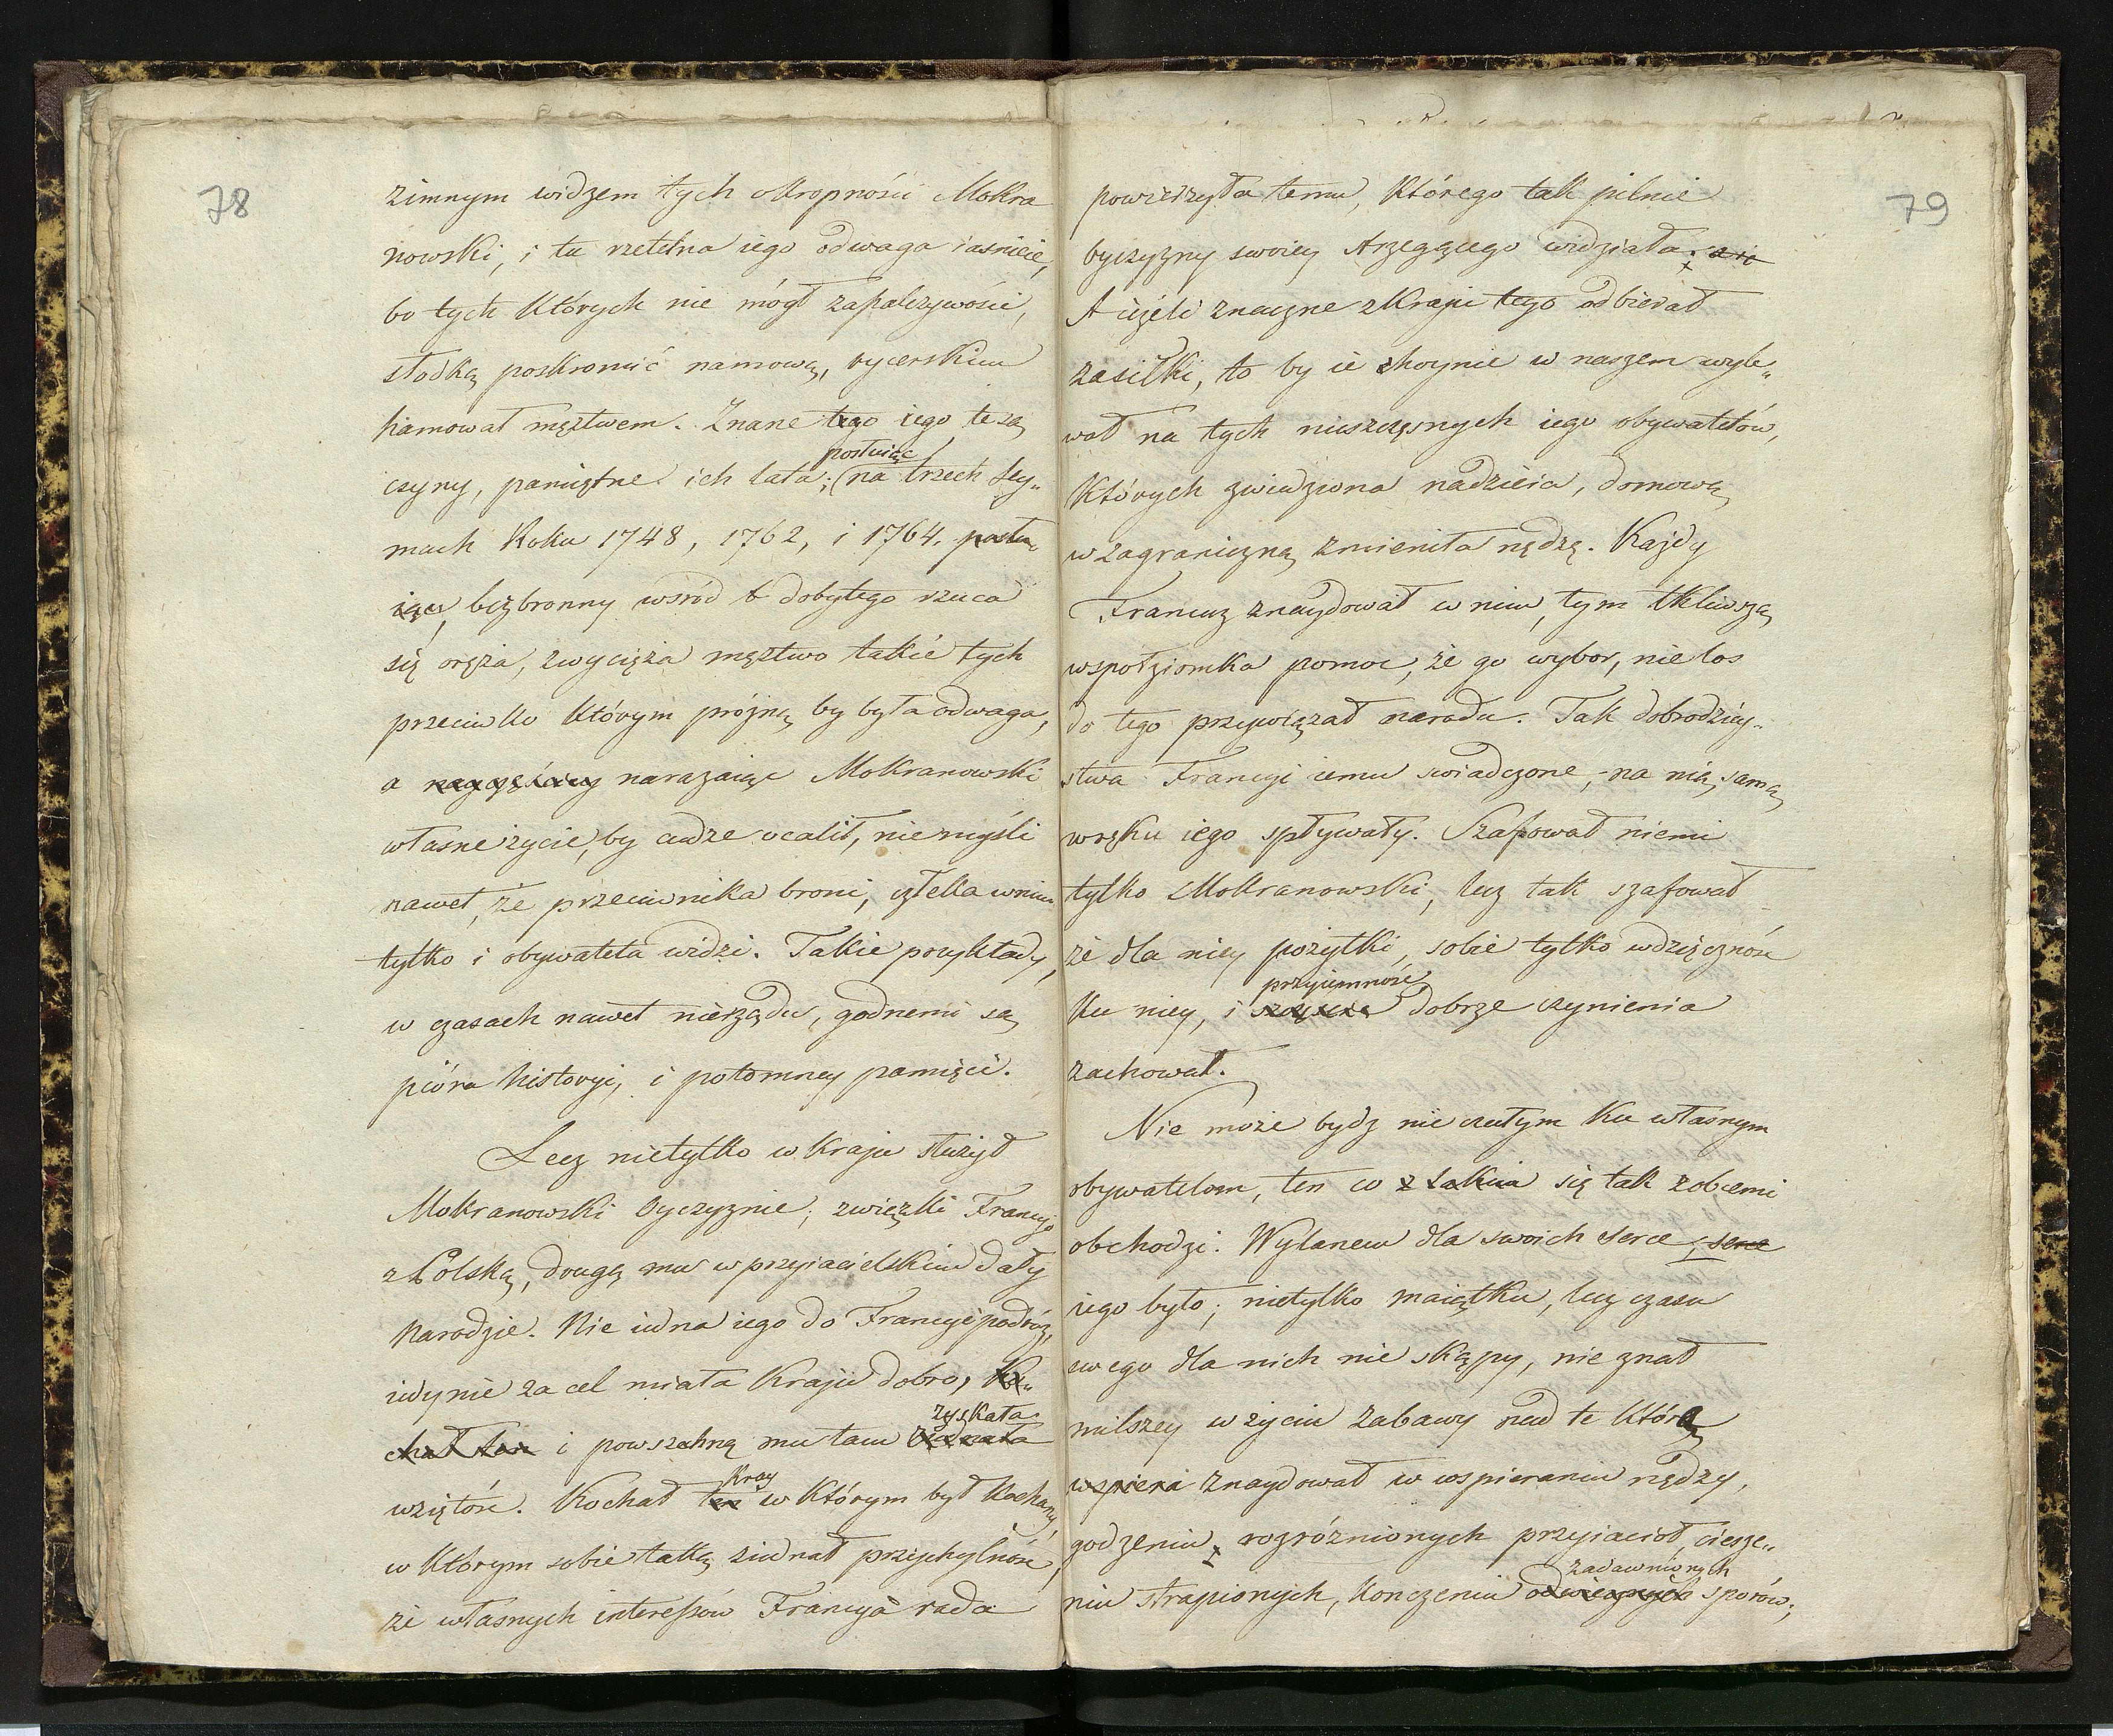 78
zimnym widzem tych okropności Mokra
nowski, i tu rzetelna iego odwaga iasnieie,
bo tych których nie mógł zapalczywości,
słodką poskromić namową, rycerskim
hamował męztwem. Znane tego iego te są
posłuiąc
czyny, pamiętne ich lata; (na trzech Sey„
mach Roku 1748, 1762, i 1764. posłu„
iąc, bezbronny wsród dobytego rzuca
się oręża, zwycięża męztwo takie tych
przeciwko którym próżną by była odwaga,
a narażaiąc Mokranowski
własne życie, by cudze ocalił, nie myśli
nawet, że przeciwnika broni, człeka w nim
tylko i obywatela widzi. Takie przykłady,
w czasach nawet nierządu, godnemi są
pióra historyi, i potomney pamięci.
Lecz nietylko w kraju służył
Mokranowski Oyczyznie; związki Francyi
z Polską, drugą mu w przyiacielskim dały
Narodzie. Nie iedna iego do Francyi podróż,
iedynie za cel miała Kraju dobro, Ko„
zyskała
chał ten i powszechną mu tam ziednała
Kray
wziętość. Kochał ten w którym był kochany,
w którym sobie taką ziednał przychylność,
że własnych interessów Francya rada
79
powierzyła temu, którego tak pilnie
oyczyzny swoiey strzegącego widziała;
A ieżeli znaczne z Kraju tego odbierał
zasiłki, to by ie hoynie w naszem wyle„
wał na tych nieszczęsnych iego obywatelów,
których zwiedziona nadzieia, domową
w zagraniczną zmieniła nędzę. Każdy
Francuz znaydował w nim, tym tkliwszą
wspołziomka pomoc, że go wybor, nie los
do tego przywiązał narodu. Tak dobrodziey„
stwa Francyi iemu swiadczone, na nią samą
w ręku iego spływały. Szafował niemi
tylko Mokranowski, lecz tak szafował
że dla niey pożytki, sobie tylko wdzięczność
przyiemność
ku niey, i szczęscie dobrze czynienia
zachował.
Nie może bydz nie czułym ku własnym
obywatelom, ten co się tak z obcemi
obchodzi. Wylanem dla swoich serce, serce
iego było; nietylko maiątku, lecz czasu
swego dla nich nie skąpy, nie znał
milszey w życiu zabawy nad te którą
wspiera znaydował w wspieraniu nędzy,
godzeniu rozróżnionych przyiacioł, ciesze„
zadawnionych
niu strapionych, konczeniu odwiecznych sporów;